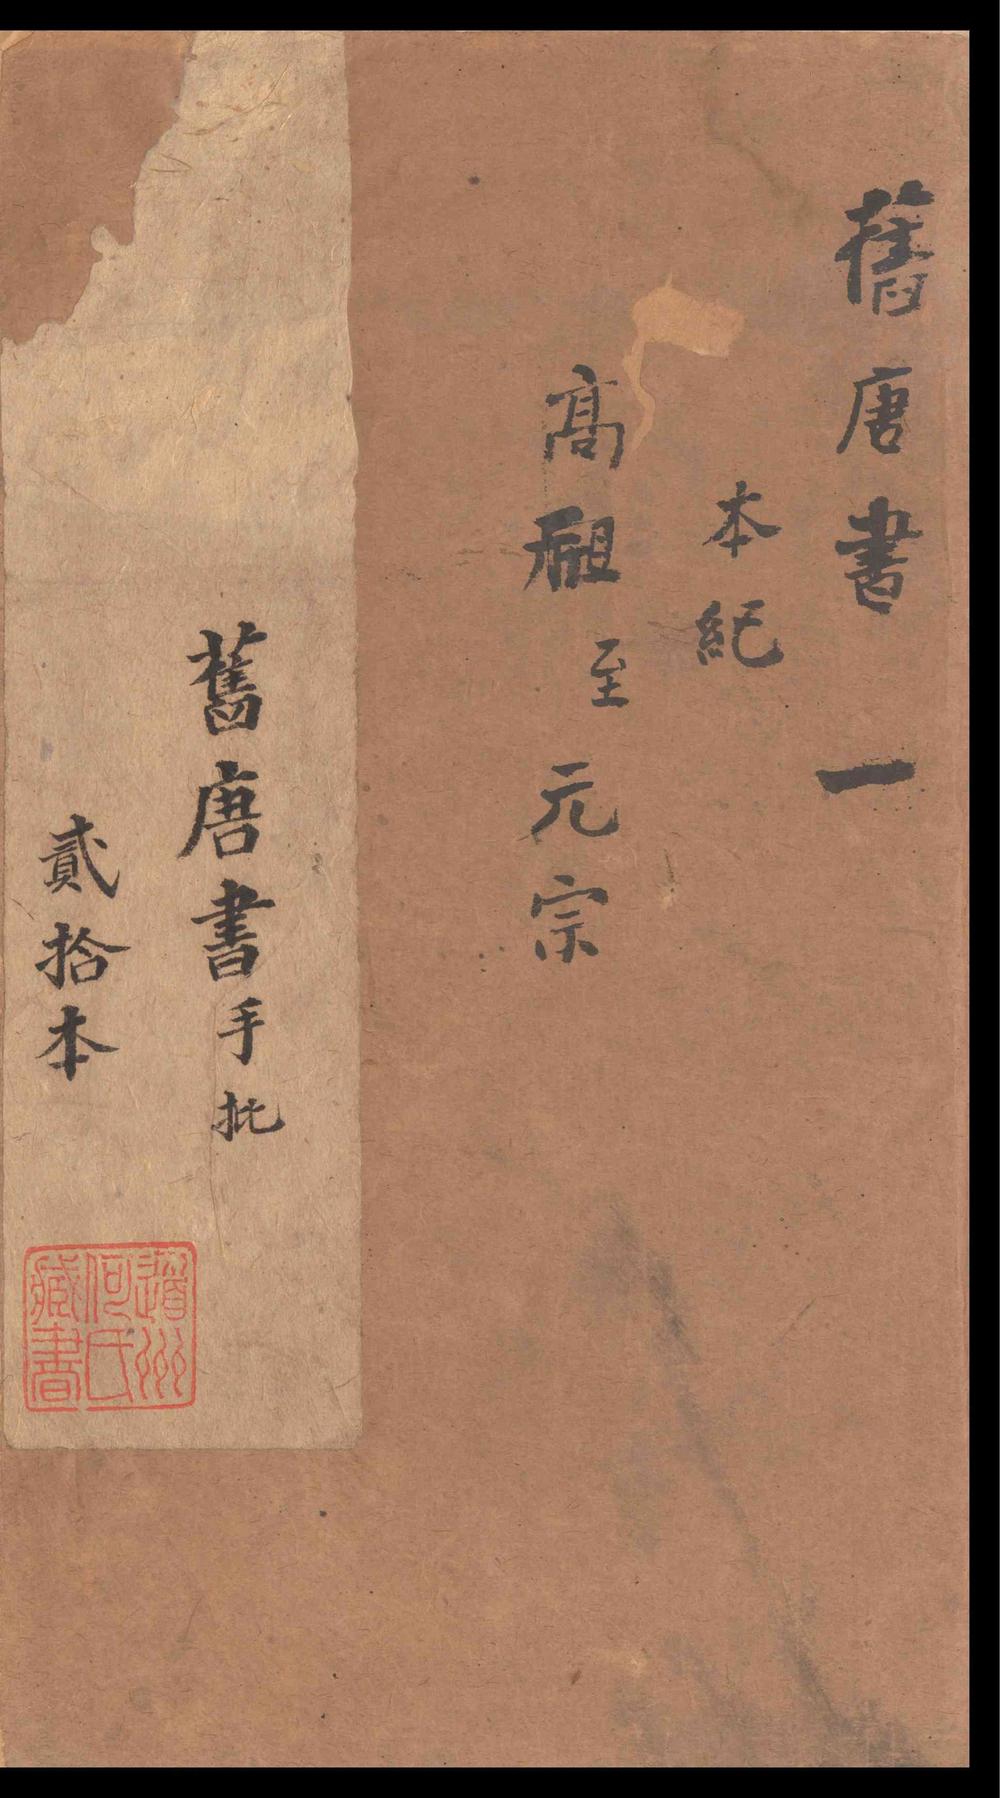 舊唐書 一
本紀
高祖至元宗
舊唐書手批
貳拾本
道州
何氏
藏書